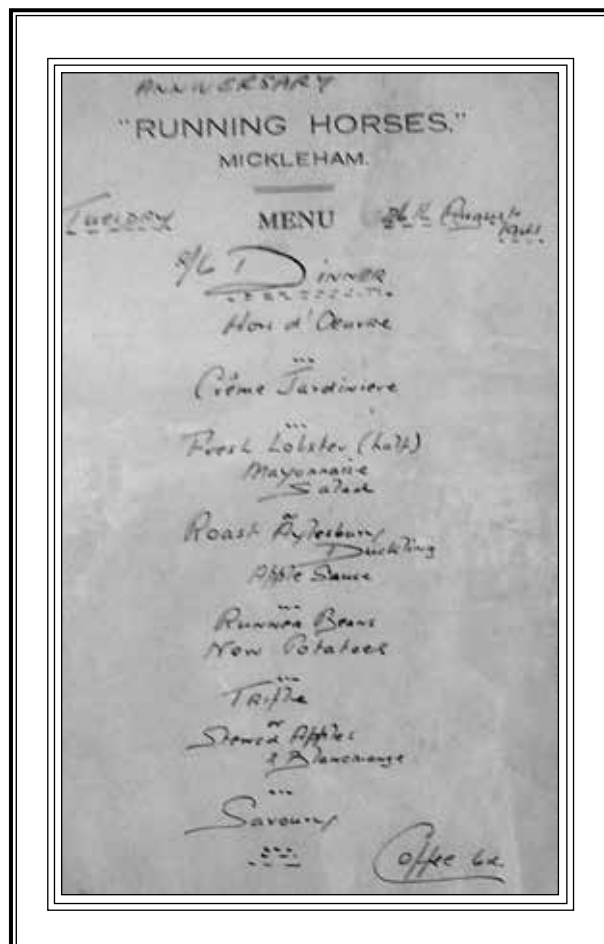 ANNIVERSARY
"RUNNING HORSES,"
MICKLEHAM.
TUESDAY MENU 26th August
1941
DINNER
Hors d'Oeuvre
Crême Jardiniere
Fresh Lobster (half)
Mayonnaise
Salad
or
Roast Aylesbury
Duckling
Apple Sauce
Runner Beans
New Potatoes
Trifle
or
Stewed Apples
& Blancmange
Savoury
Coffee 6d.